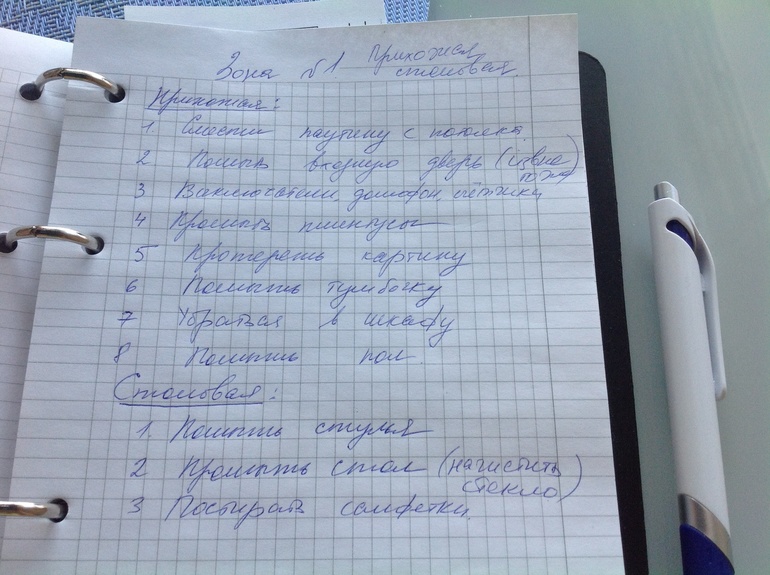 Зона №1 Прихожая
столовая.
Прихожая:
1 Смести паутину с потолка
2 Помыть входную дверь (извне
тоже)
3 Выключатели, домофон, счётчики
4 Промыть плинтусы
5 Протереть картину
6 Помыть тумбочку
7 Убраться в шкафу
8 Помыть пол.
Столовая:
1. Помыть стулья
2 Промыть стол (начистить
стекло)
3 Постирать салфетки.